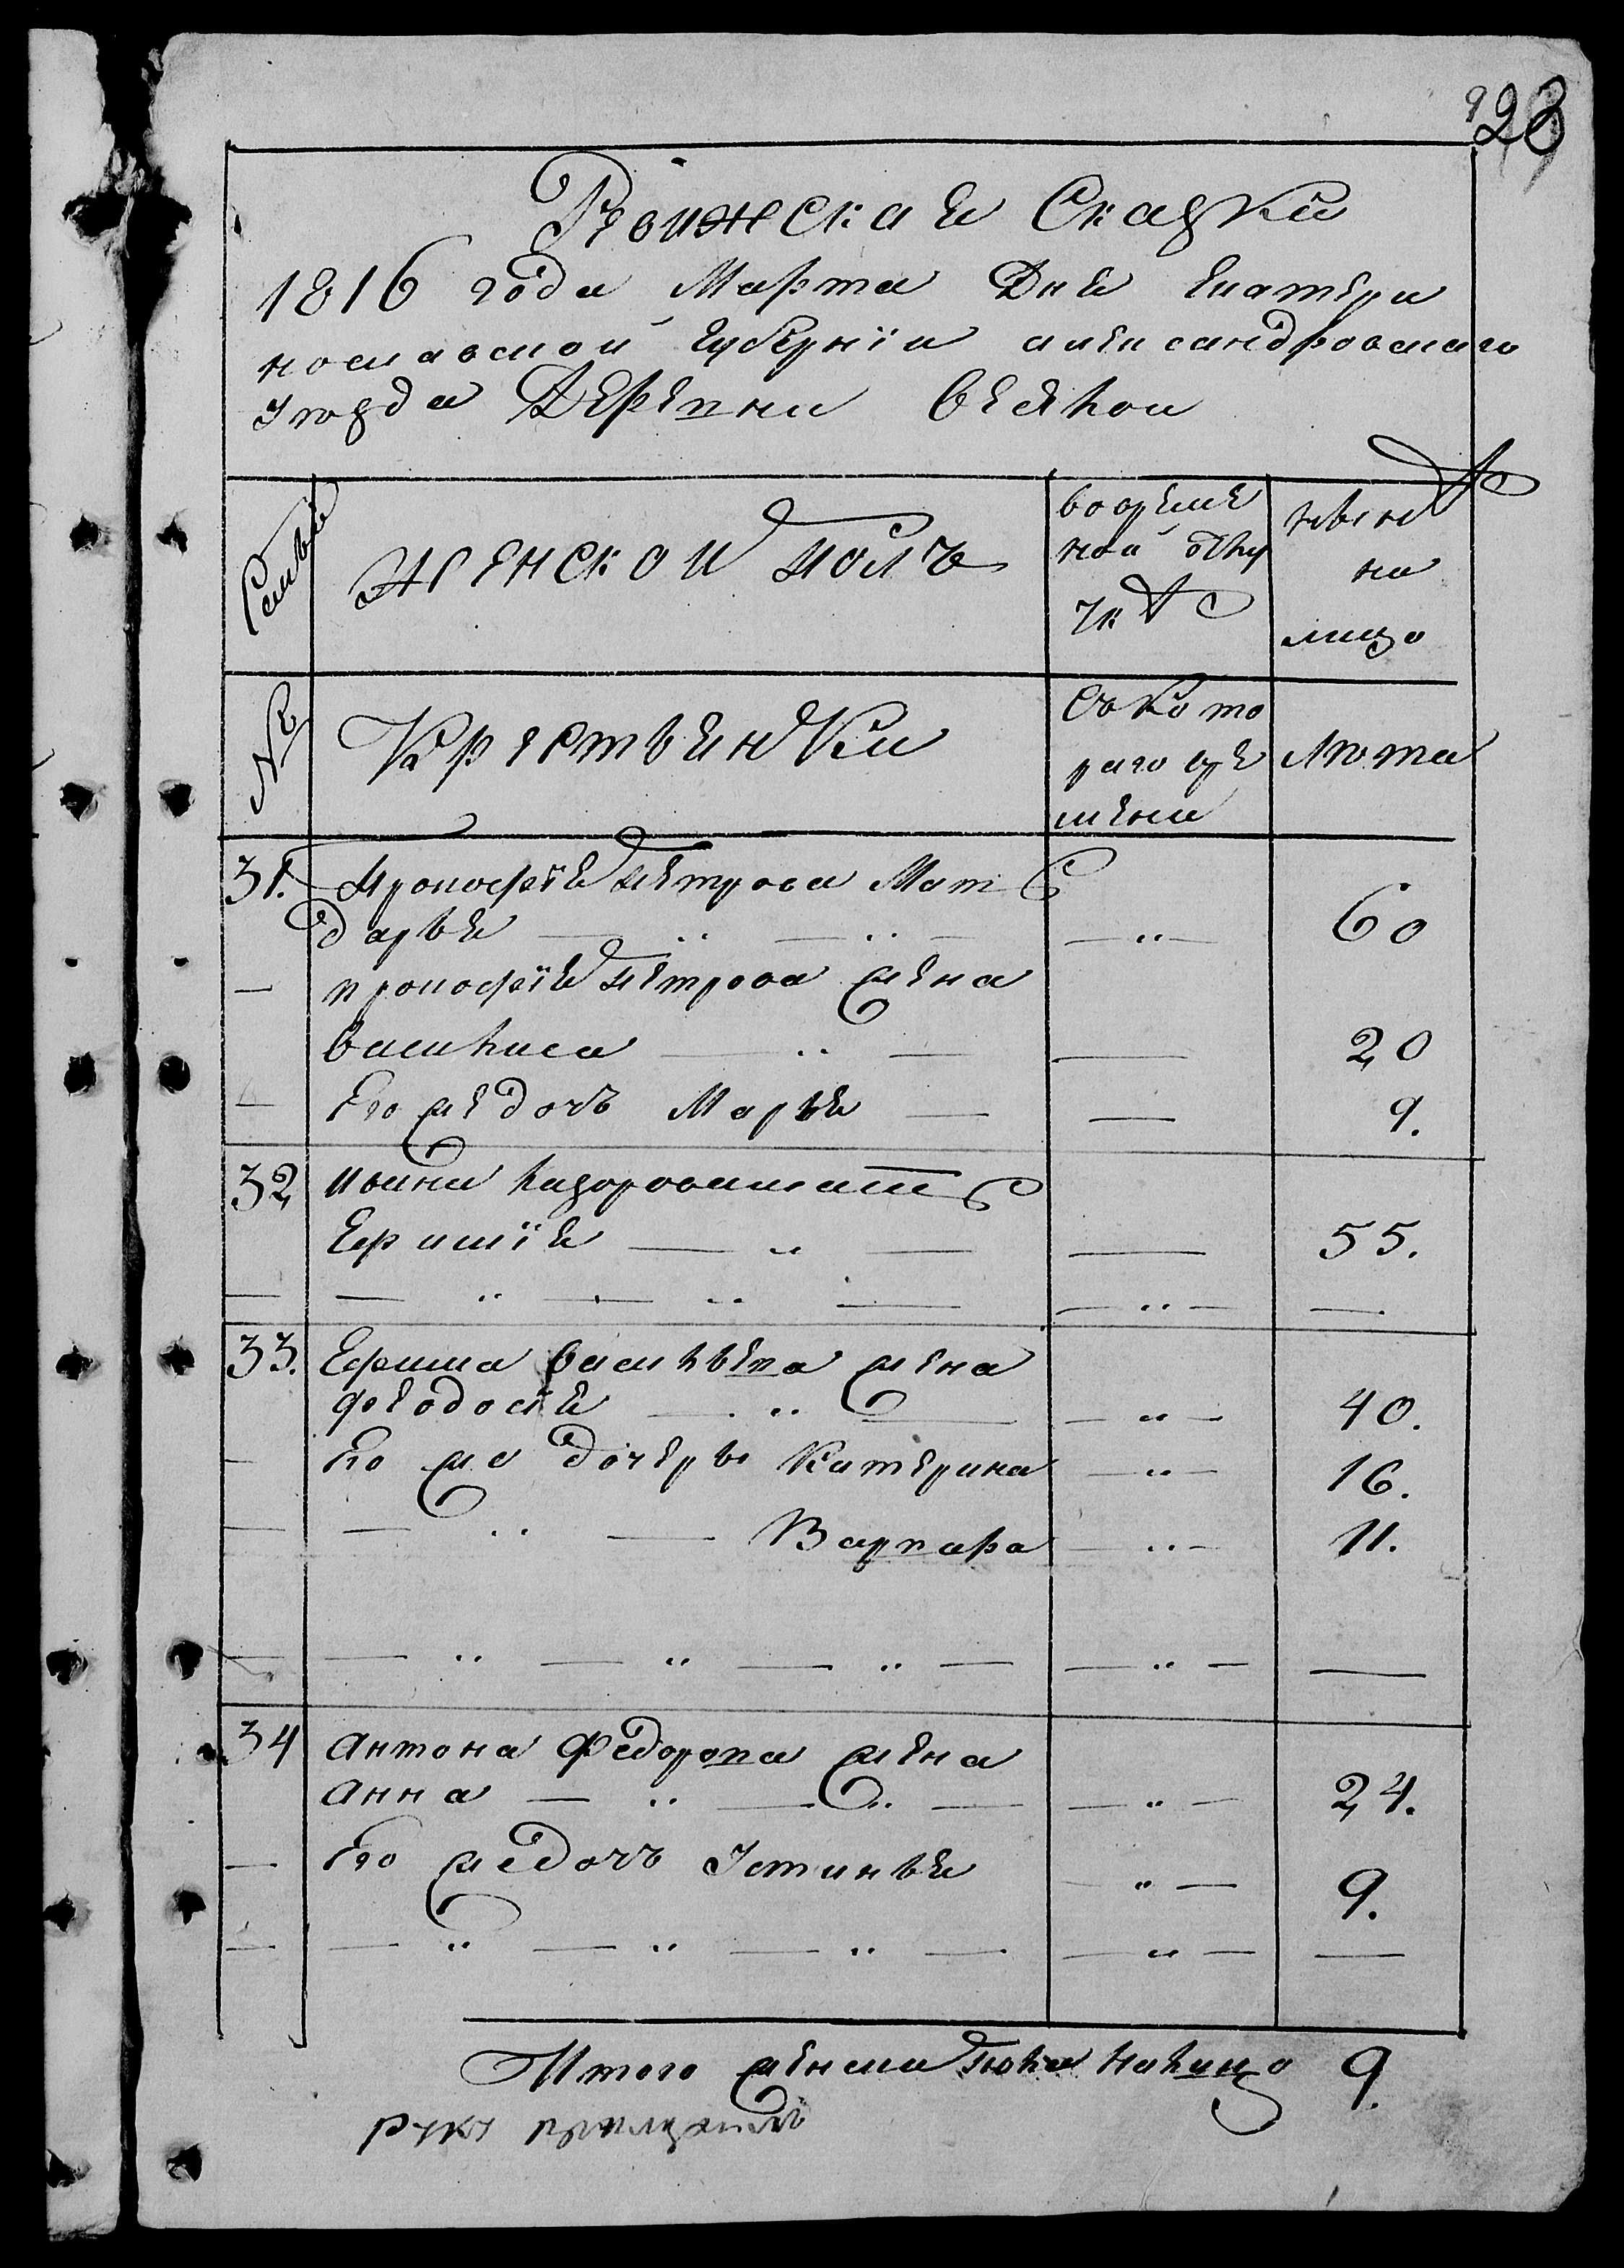 928
Ревижская Сказка
1816 года Марта Дня Екатери
нославской губернїи александровскаго
уезда Деревни
Семьи
женской полъ
вовреме
ной отлу
чкѣ
нынѣ
на
лицо
№
Крестьянки
Съ кото
раго вре
мени
Лѣта
31. Прокофїя петрова Мат
дарья — „ — „ — — „ — 60
— прокофїя петрова жена
василиса — „ — — 20
— Его жедочь Марья — — 9.
32 ивана лазорова мать
Ефимїя — „ — — 55.
— — „ — „ — — „ — —
33. Ефима васильева жена
феодосїя — „ — — „ — 40.
— Его же дочеры Катерина — „ — 16.
— — „ — Варвара — „ — 11.
— — „ — „ — „ — — „ — —
34 антона Федорова жена
анна — „ — „ — — „ — 24.
— Его жедочь Устинья — „ — 9.
— — „ — „ — „ — — „ — —
Итого женска пола налицо 9.